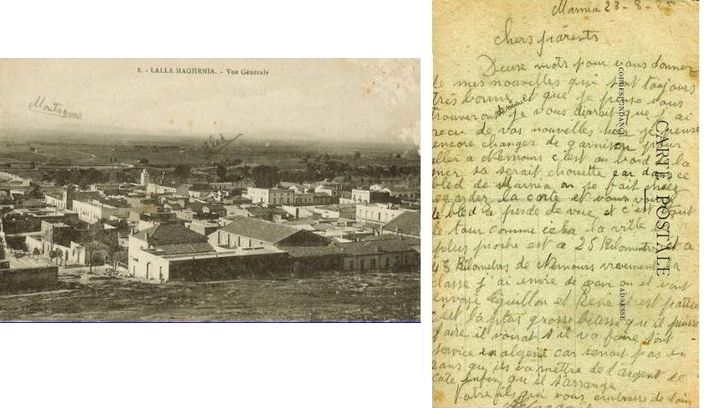 8. - LALLA MAGHRNIA. - Vue Générale
Montagnes
Bled
Marnia 23-8-
Chers parents
Deux mots pour vous donner
de mes nouvelles qui sont toujours
très bonne et que je pense vous
trouverons de même je vous dirait que j'ai
recu de vos nouvelles hier je pense
encore changer de garnison pour
aller a Nemours c'est au bord de la
mer sa serait chouette car dans ce
bled de Marnia on ne fait que
regarder la carte et vous voyez
le bled a perde de vue et c'est tout
le tour comme cela la ville la
plus proche est a 25 Kilometres et a
45 Kilometres de Nemours vivement la
classe j'ai envie de voir on et vont
envoyé Eguillon et René est partie
c'est la plus grosse bétise qu'il puisse
faire il voirat s'il va faire son
service en algerie car serait pas en
2 ans qu'ils va mettre de l'argent de
cote enfin qu'il s'arrange
Votre fils qui vous embrasse de loin
CARTE POSTALE
CORRESPONDANCE
ADRESSE